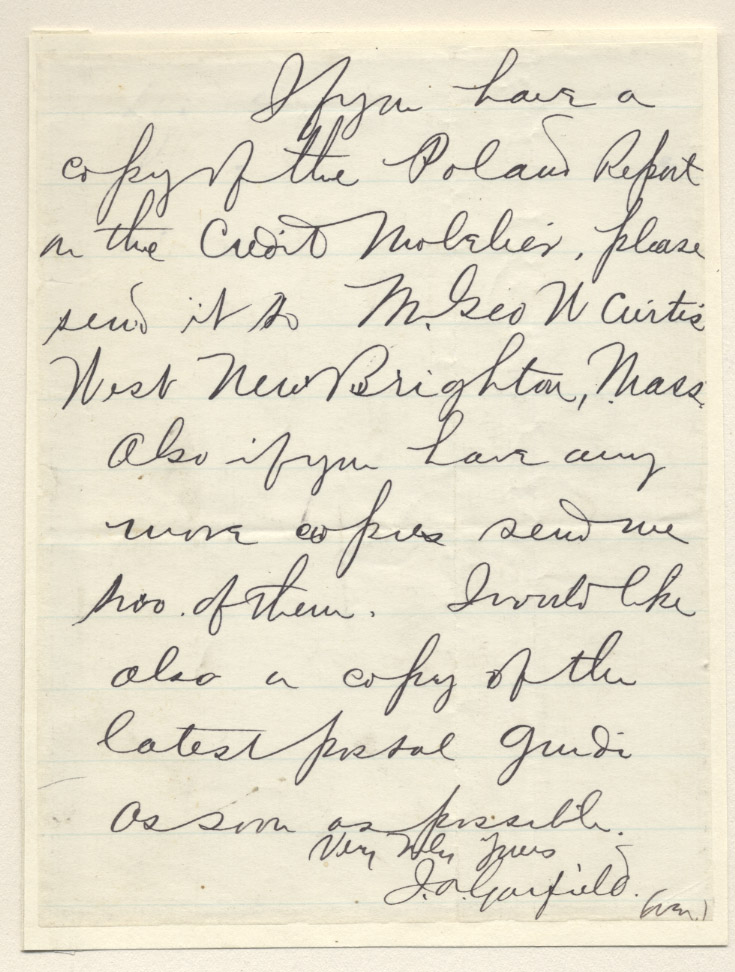 If you have a
copy of the Poland Report
on the Credit Mobelier, please
send it to Mr. Geo W Curtis
West New Brighton, Mass.
Also if you have any
more copies send me
two of them. I would like
also a copy of the
latest postal guide
as soon as possible.
Very Truly Yours
J.A. Garfield.
(over.)